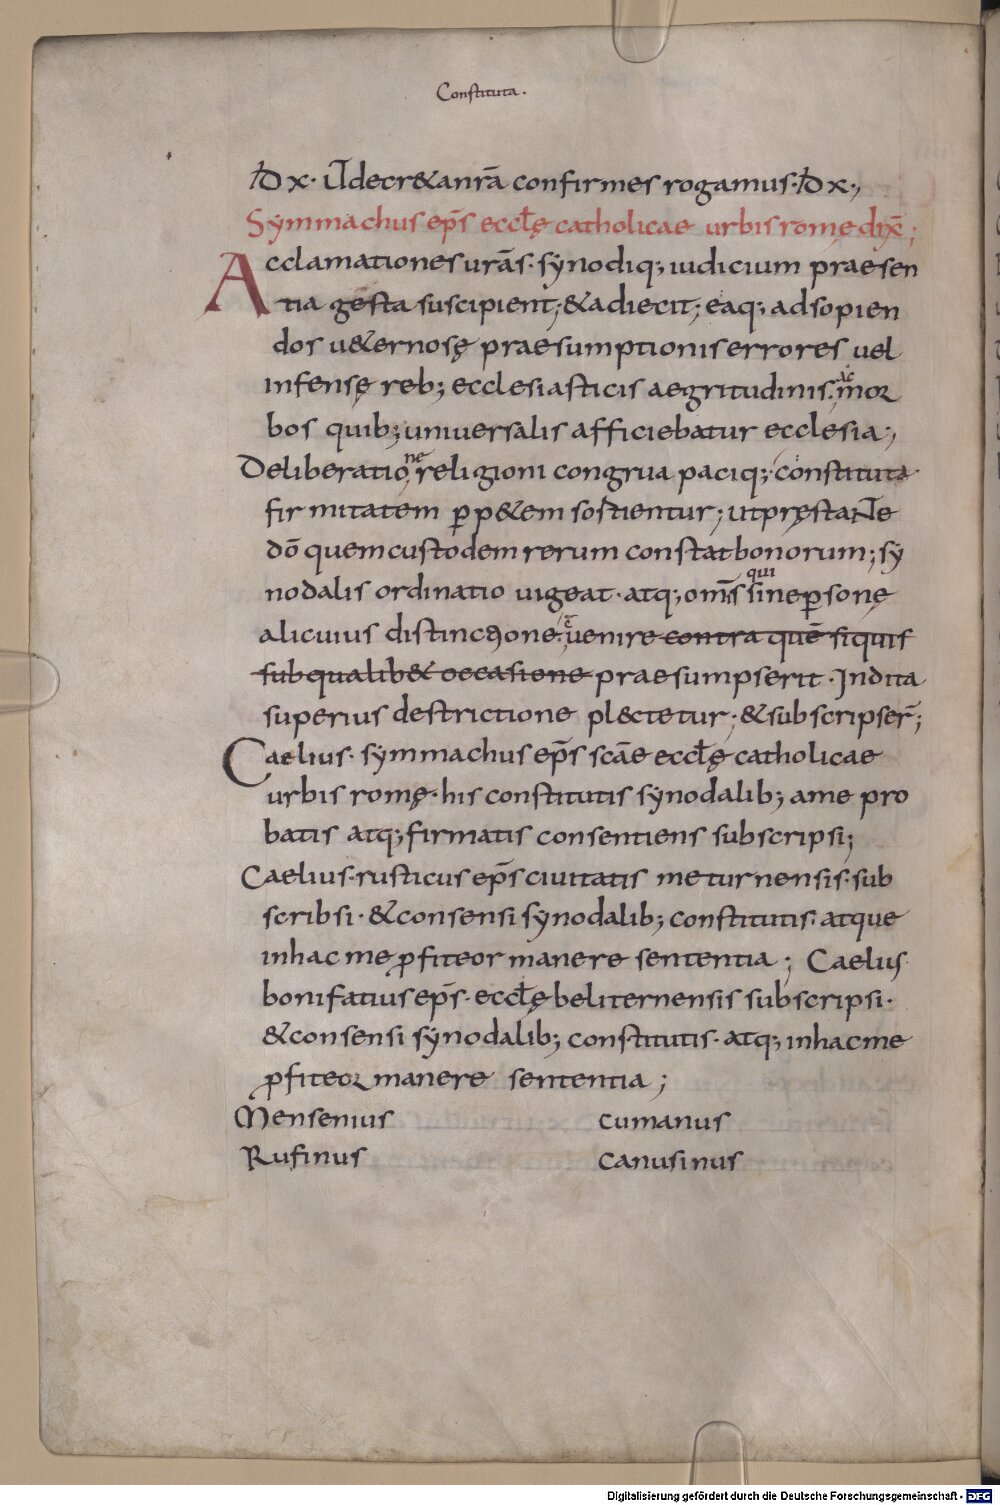 Constituta.
Dx· Ut decr&a nrā confirmes rogamus· Dx·,
Symmachus ep̄s eccl̄ę catholicae urbis romę dix̄;
Acclamationes urās· synodiq; iudicium praesen
tia gesta suscipient; & adiecit; eaq; ad sopien
dos u&ernosę praesumptionis errores uel
infensę reb; ecclesiasticis aegritudinis; ac mor
bos quib; uniuersalis afficiebatur ecclesia;,
Deliberatione religioni congrua paciq; constituta
firmitatem p̱p&em sostientur; ut pręstante
dō quem custodem rerum constat bonorum; sy
nodalis ordinatio uigeat· atq; om̄s qui sine p̱sonę
alicuius distinctione; uenire contra quē siquis
sub qualib& occasione praesumpserit· Indita
superius destrictione pl&ctetur; & subscripser̄;
Caelius· symmachus ep̄s scāe eccl̄ę catholicae
urbis romę· his constitutis synodalib; a me pro
batis atq; firmatis consentiens subscripsi;
Caelius· rusticus ep̄s ciuitatis meturnensis· sub
scribsi· & consensi synodalib; constitutis· atque
in hac me ꝓfiteor manere sententia; Caelius
bonifatius ep̄s· eccl̄ę beliternensis subscripsi·
& consensi synodalib; constitutis· atq; in hac me
ꝓfiteor manere sententia;
Mensenius cumanus
Rufinus canusinus
Digitalisierung gefördert durch die Deutsche Forschungsgemeinschaft - DFG